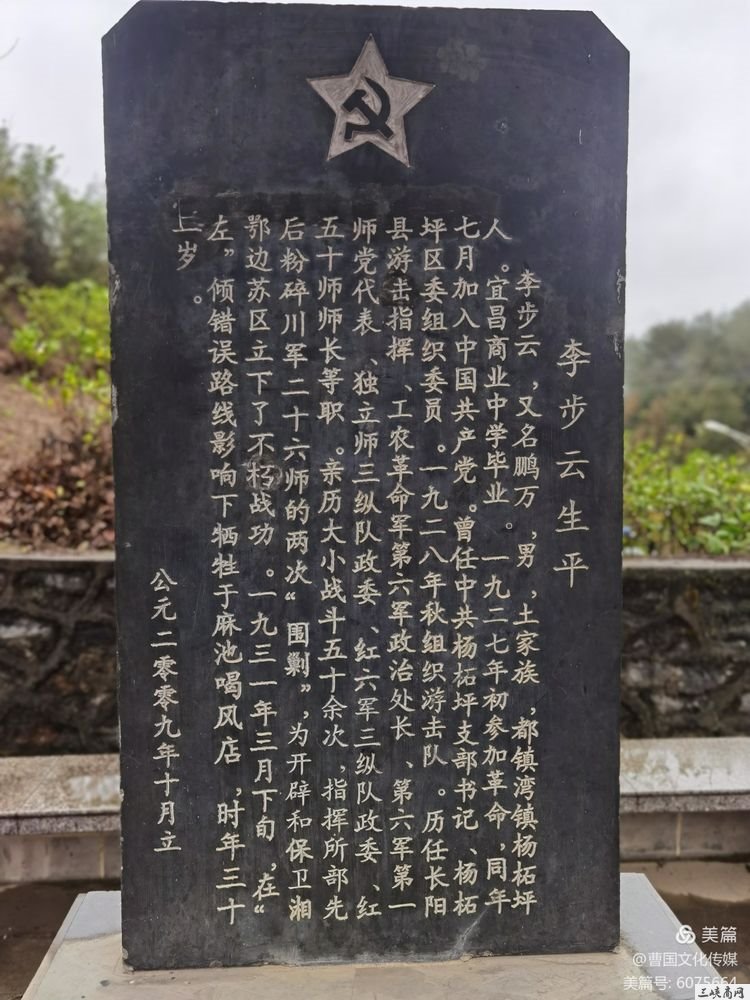 李步云生平
李步云，又名鹏万，男，土家族，都镇湾镇杨柘坪
人。宜昌商业中学毕业。一九二七年初参加革命，同年
七月加入中国共产党。曾任中共杨柘坪支部书记、杨柘
坪区委组织委员。一九二八年秋组织游击队。历任长阳
县游击指挥、工农革命军第六军政治处长、第六军第一
师党代表、独立师三纵队政委、红六军三纵队政委、红
五十师师长等职。亲历大小战斗五十余次，指挥所部先
后粉碎川军二十六师的两次“围剿”，为开辟和保卫湘
鄂边苏区立下了不朽战功。一九三一年三月下旬，在“
左”倾错误路线影响下牺牲于麻池喝风店，时年三十
三岁。
公元二零零九年十月立
美篇
@曹国文化传媒
美篇号: 6075664
三峡商网